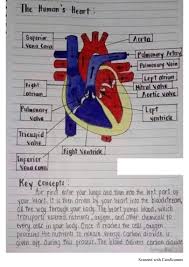 The Human's Heart :
Superior Vena Cava
Aorta
Pulmonary Artery
Pulmonary Vein
Left atrium
Mitral Valve
Aortic valve
Right atrium
Pulmonary valve
Left Ventricle
Tricuspid valve
Right Ventricle
Inferior Vena Cava
Key Concepts :
Air first enter your lungs and then into the left part of
your heart. It is then driven by your heart into the bloodstream,
all the way through your body. The heart pumps blood, which
transports essential nutrients, oxygen, and other chemical to
every cell in your body. Once it reaches the cells, oxygen
processes the nutrients to release energy. Carbon dioxide is
given off during this process. The blood delivers carbon dioxide
Scanned with CamScanner